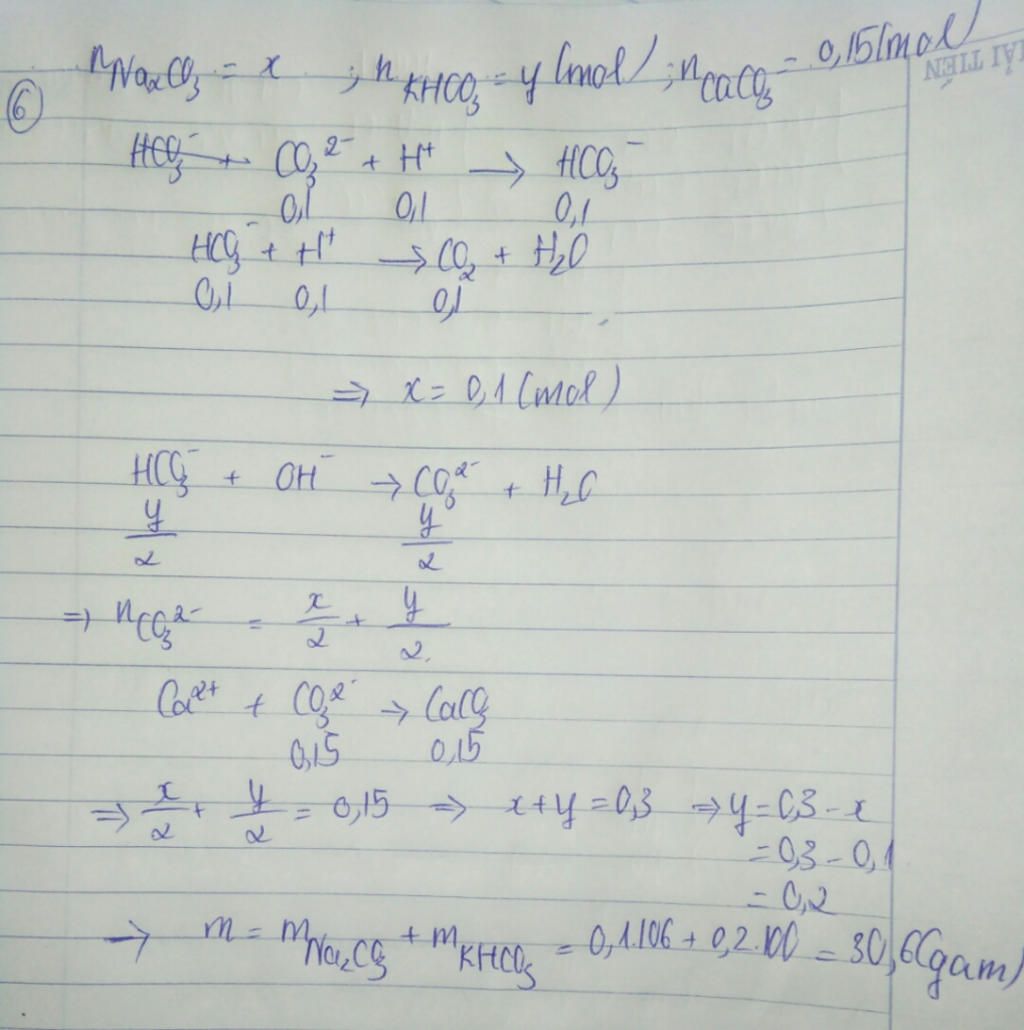 n_Na₂CO₃ = x ; n_KHCO₃ = y (mol) ; n_CaCO₃ = 0,15 (mol)
TẢI TIẾN
⑥
HCO₃⁻ + CO₃²⁻ + H⁺ → HCO₃⁻
0,1 0,1 0,1
HCO₃⁻ + H⁺ → CO₂ + H₂O
0,1 0,1 0,1
=> x = 0,1 (mol)
HCO₃⁻ + OH⁻ → CO₃²⁻ + H₂O
y/2 y/2
=> n_CO₃²⁻ = x/2 + y/2
Ca²⁺ + CO₃²⁻ → CaCO₃
0,15 0,15
=> x/2 + y/2 = 0,15 => x + y = 0,3 => y = 0,3 - x
= 0,3 - 0,1
= 0,2
→ m = m_Na₂CO₃ + m_KHCO₃ = 0,1.106 + 0,2.100 = 30,6 (gam)